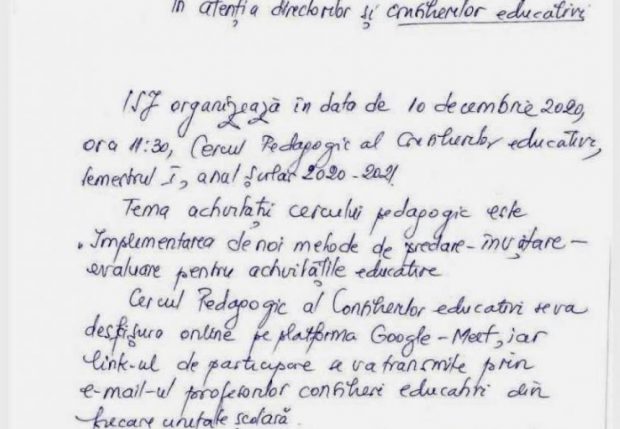 În atenția directorilor și consilierilor educativi
ISJ organizează în data de 10 decembrie 2020,
ora 11:30, Cercul Pedagogic al Consilierilor educativi,
semestrul I, anul școlar 2020-2021.
Tema activității cercului pedagogic este
"Implementarea de noi metode de predare-învățare-
evaluare pentru activitățile educative
Cercul Pedagogic al Consilierilor educativi se va
desfășura online pe platforma Google-Meet, iar
link-ul de participare se va transmite prin
e-mail-ul profesorilor consilieri educativi din
fiecare unitate școlară.